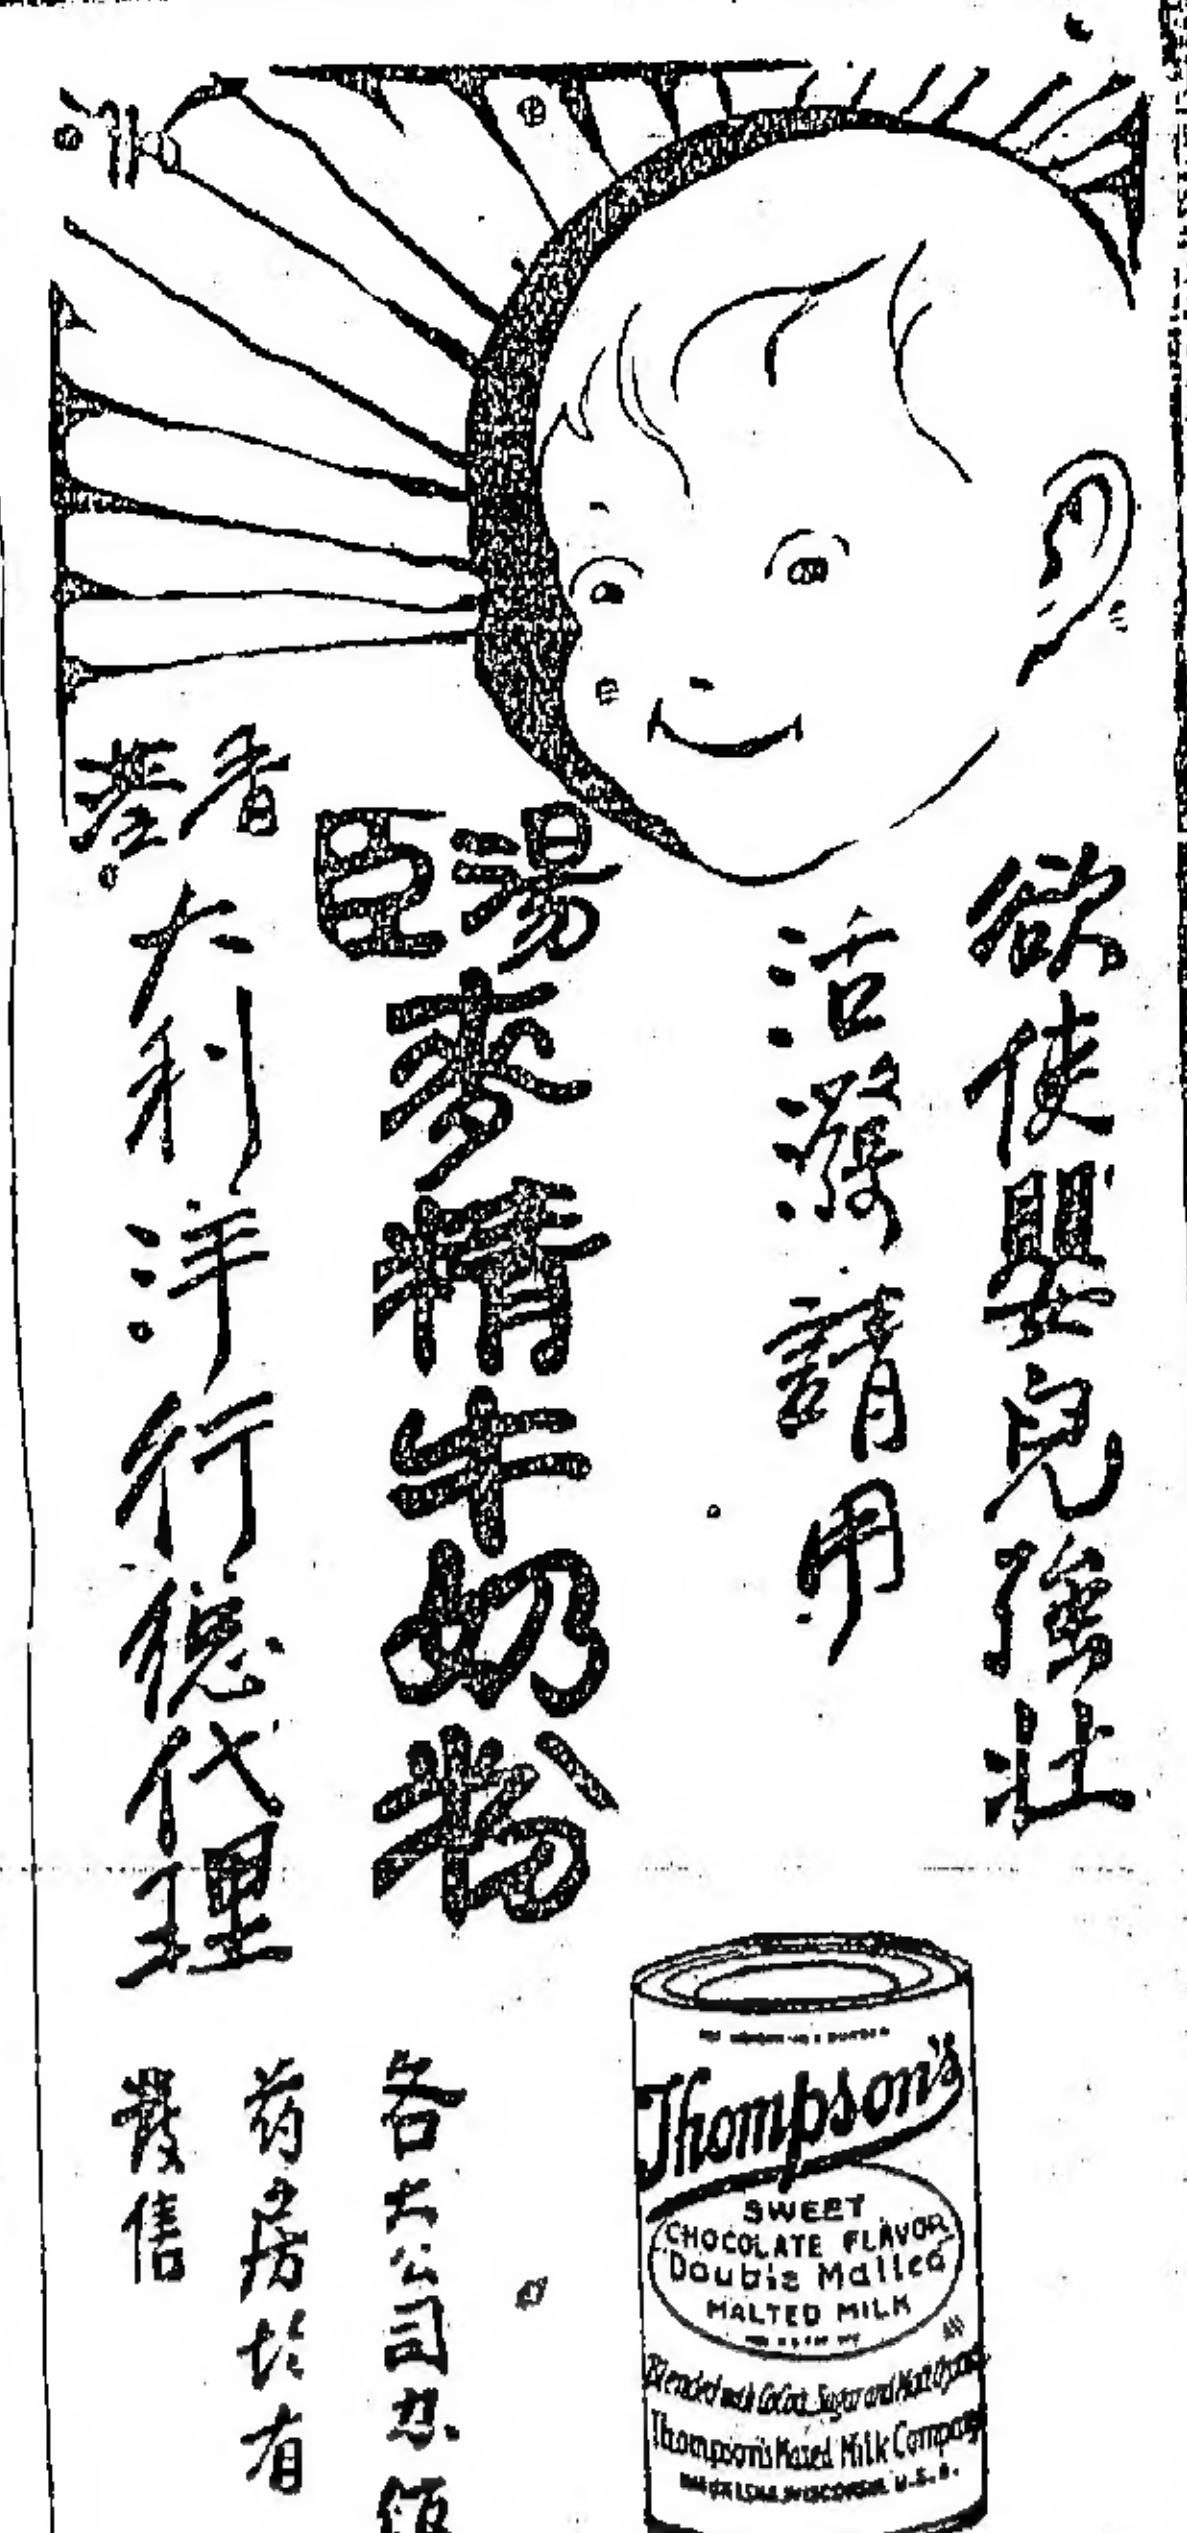 欲使嬰兒強壯
活潑請用
湯臣
麥精牛奶粉
香港
大利洋行總代理
各大公司
葯房均有
發售
Thompson's
SWEET
CHOCOLATE FLAVOR
Double Malted
MALTED MILK
Blended with Cocoa, Sugar and Malt
Thompson's Malted Milk Company
WAUKESHA, WISCONSIN, U.S.A.